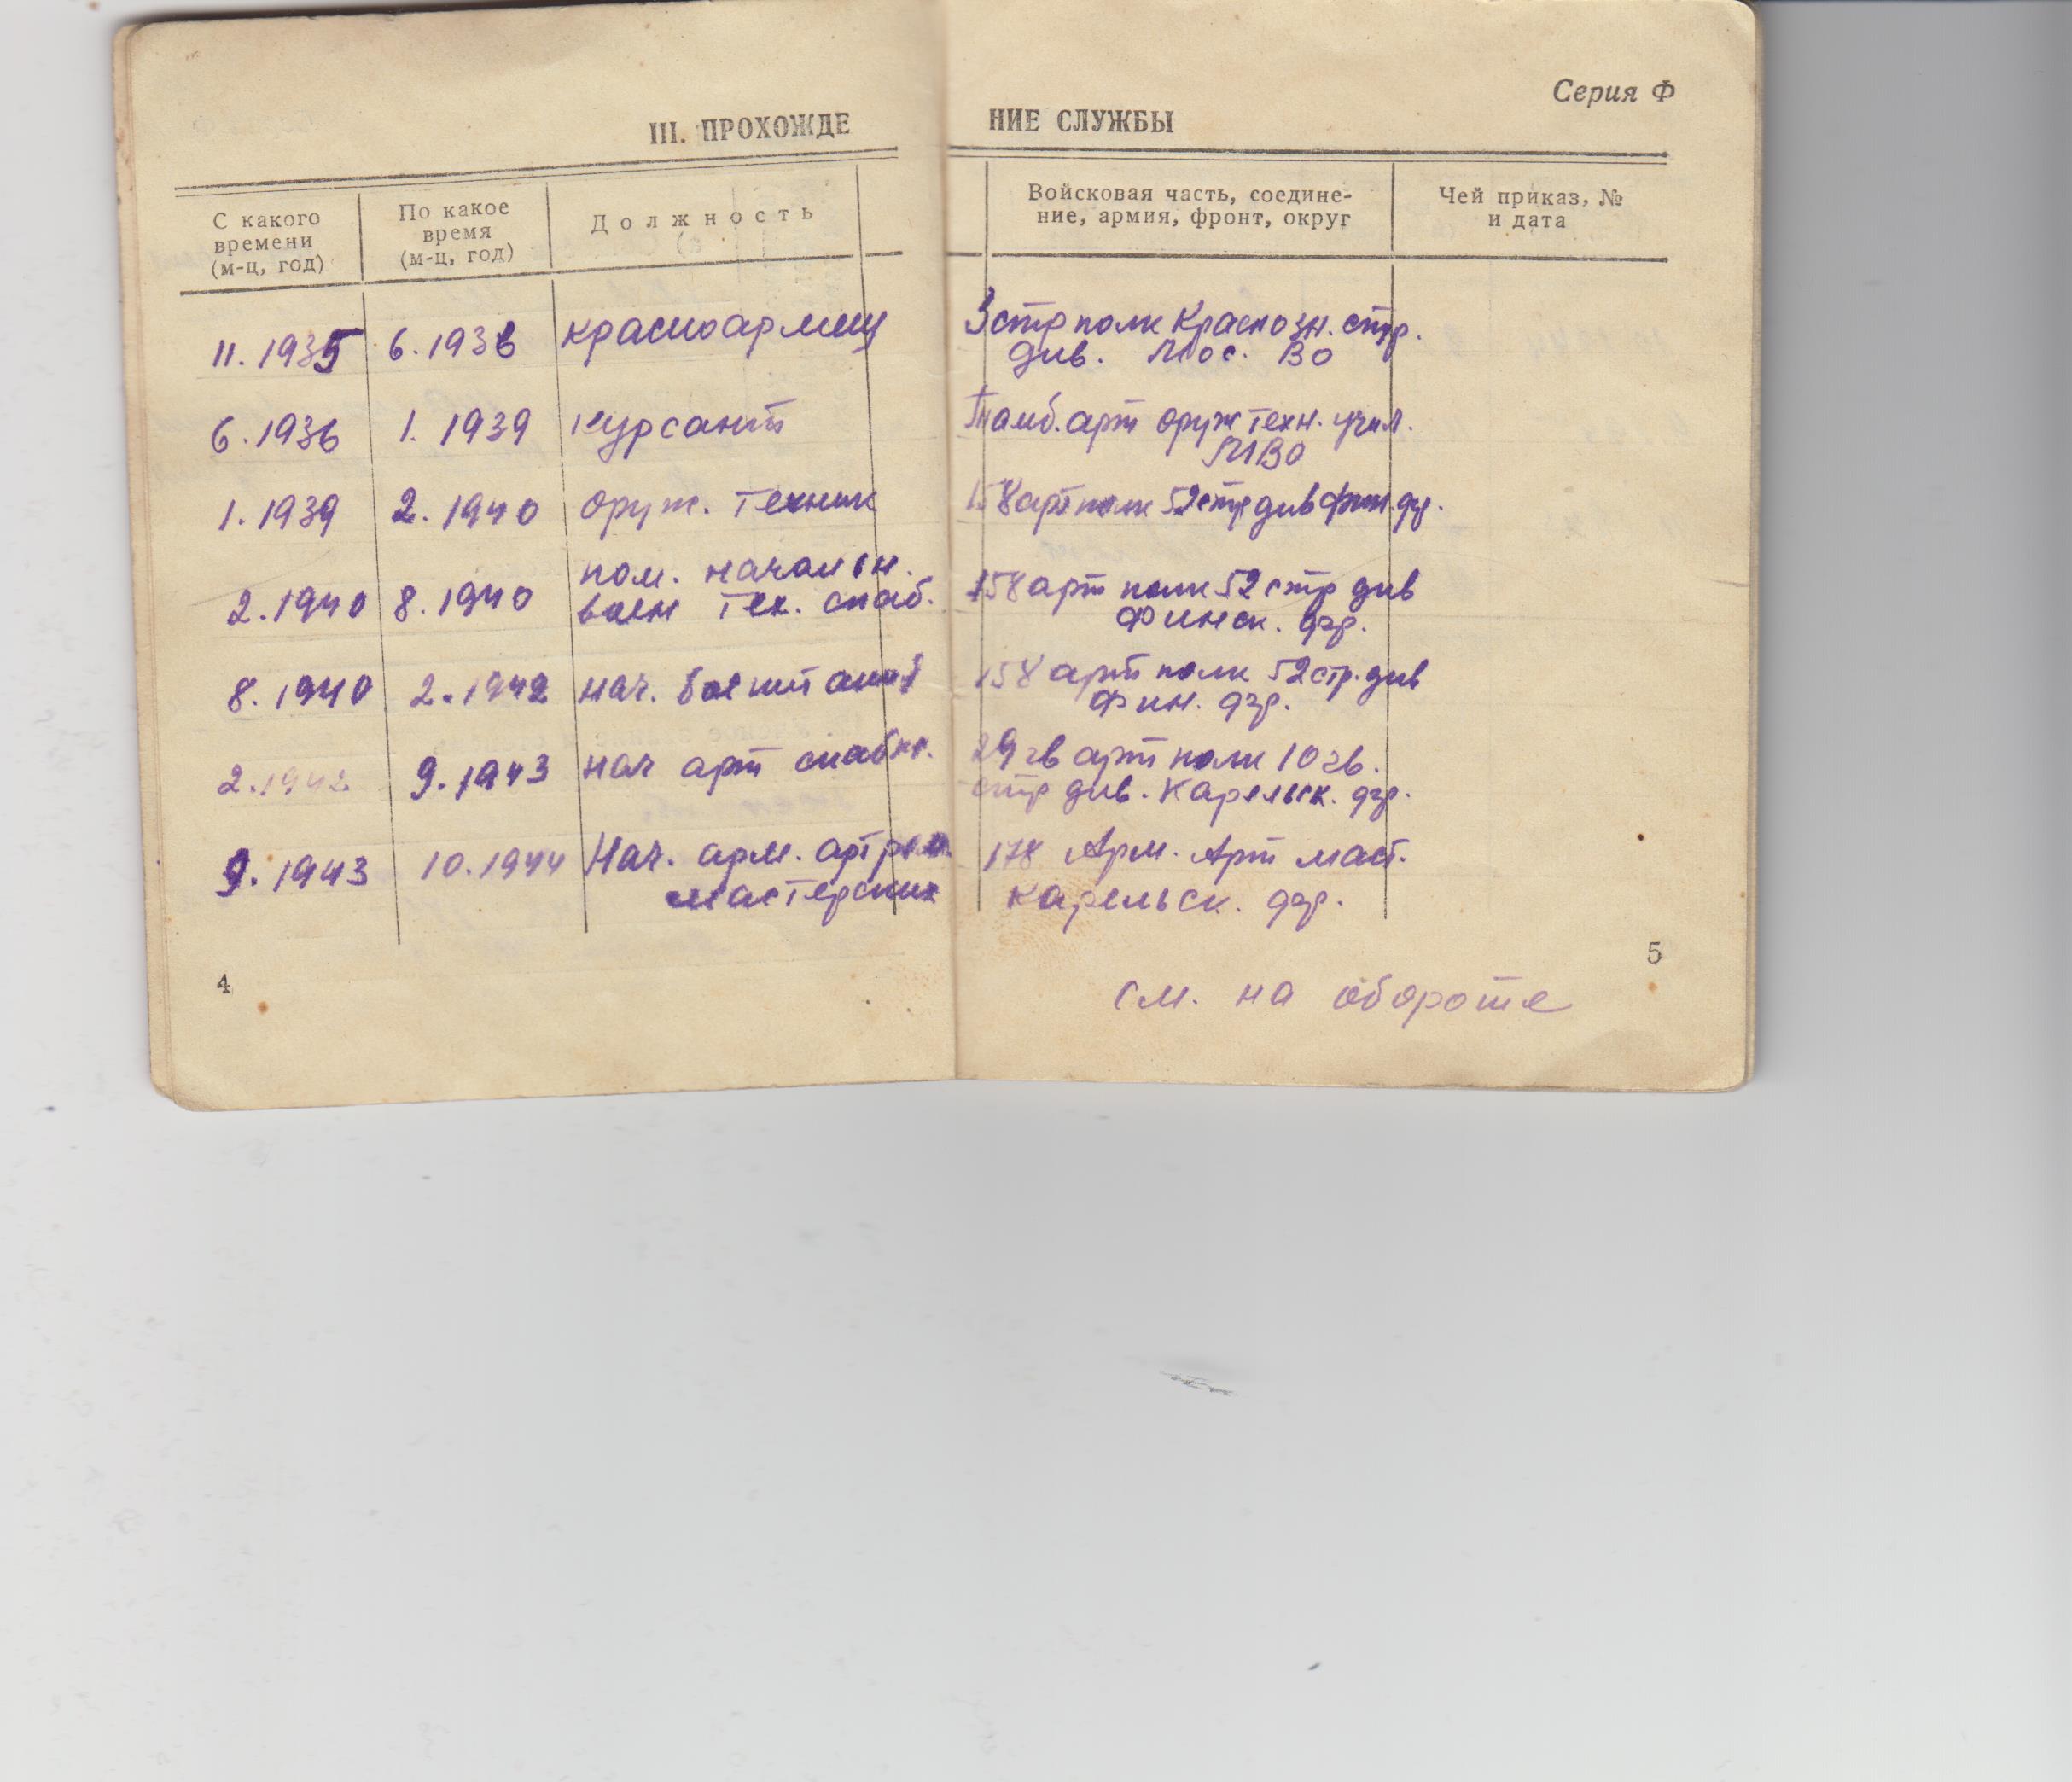 Серия Ф
III. ПРОХОЖДЕ НИЕ СЛУЖБЫ
С какого времени (м-ц, год)
По какое время (м-ц, год)
Должность
Войсковая часть, соедине-
ние, армия, фронт, округ
Чей приказ, №
и дата
11. 1935 6. 1936 красноармеец 3 стр полк Краснозн. стр.
див. Мос. ВО
6. 1936 1. 1939 курсант Тамб. арт оруж техн. учил.
МВО
1. 1939 2. 1940 оруж. техник 158 арт полк 52 стр див фин.
2. 1940 8. 1940 пом. начальн.
воен тех. снаб. 158 арт полк 52 стр див
Финск.
8. 1940 2. 1942 нач. боепитания 158 арт полк 52 стр. див
Фин.
2. 1942 9. 1943 нач арт снабж. 29 гв арт полк 10 гв.
стр див. Карельск.
9. 1943 10. 1944 Нач. арм. арт рем.
мастерских 178 Арм. Арт маст.
Карельск.
4
5
см. на обороте